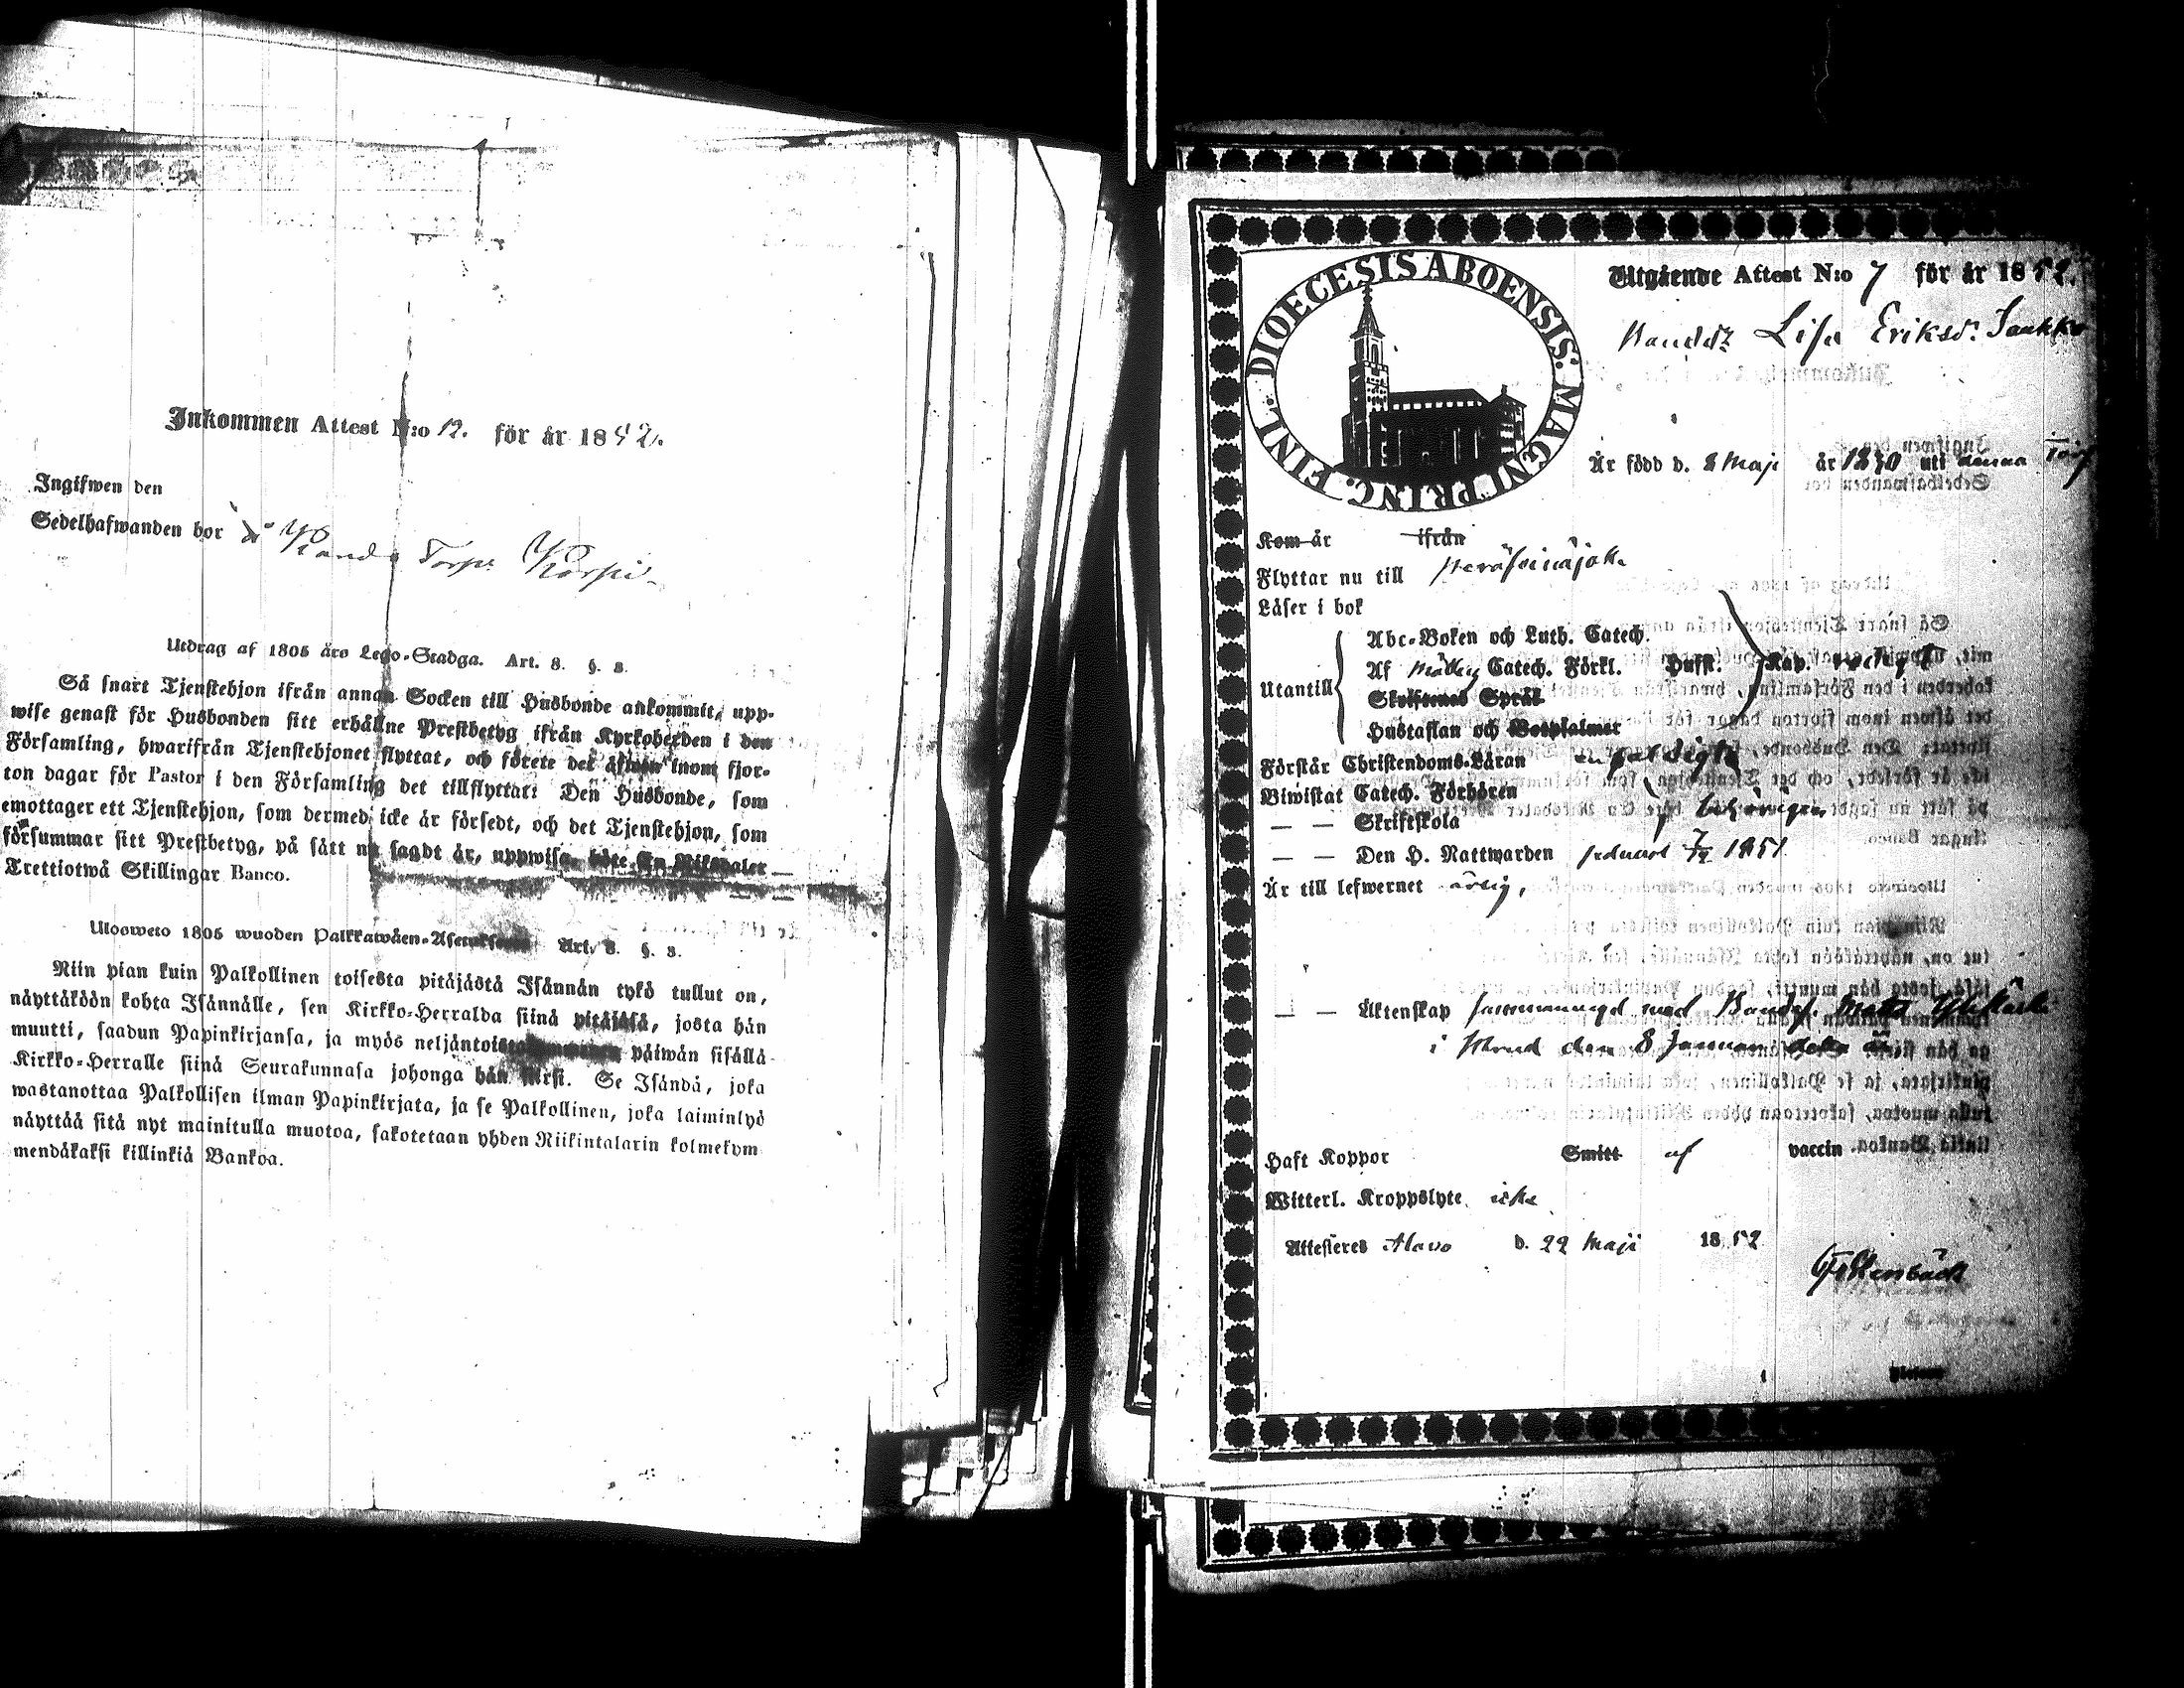 Inkommen Attest N:o 12. för år 1852.
Ingifwen den
Sedelhafwanden bor å Torp Korpi
Utdrag af 1805 års Lego-Stadga. Art. 8. §. 3.
Så snart Tjenstehjon ifrån annan Socken till Husbonde ankommit, upp-
wise genast för Husbonden sitt erhållne Prestbetyg ifrån Kyrkoherden i den
Församling, hwarifrån Tjenstehjonet flyttat, och förete det äfwen inom fjor-
ton dagar för Pastor i den Församling det tillflyttat: Den Husbonde, som
emottager ett Tjenstehjon, som dermed icke är försedt, och det Tjenstehjon, som
försummar sitt Prestbetyg, på sätt nu sagdt är, uppwisa, böte En Riksdaler
Trettiotwå Skillingar Banco.
Ulosweto 1805 wuoden Palkkawäen-Asetuksesta Art. 8. §. 3.
Niin pian kuin Palkollinen toisesta pitäjästä Isännän tykö tullut on,
näyttäköön kohta Isännälle, sen Kirkko-Herralda siinä pitäjäsä, josta hän
muutti, saadun Papinkirjansa, ja myös neljäntoistakymmenen päiwän sisällä
Kirkko-Herralle siinä Seurakunnasa johonga hän siirsi. Se Isändä, joka
wastanottaa Palkollisen ilman Papinkirjata, ja se Palkollinen, joka laiminlyö
näyttää sitä nyt mainitulla muotoa, sakotetaan yhden Riikintalarin kolmekym
mendäkaksi killinkiä Bankoa.
DIOECESIS ABOENSIS. MAGNI PRINC. FINL.
Utgående Attest N:o 7 för år 1852.
Lisa Eriksd. Saukko
Är född d. 8 Maji år 1830 uti denna
Kom år ifrån
Flyttar nu till Peräseinäjoki
Läser i bok
Utantill
Abc-Boken och Luth. Catech.
Af Catech. Förkl. Hufst. Kap.
Skriftenes Språk
Hustaflan och Botpsalmer
Förstår Christendoms-Läran enfaldigt
Biwistat Catech. Förhören
— — Skriftskola behörigen
— — Den H. Nattwarden sednast 7/12 1851
Är till lefwernet ärlig,
— — Äktenskap sammanvigd med Bondes. Matts
i Ilmola den 8 Januari detta år
Haft Koppor Smitt af vaccin
Witterl. Kroppslyte icke
Attesteras Alavo d. 22 Maji 1852